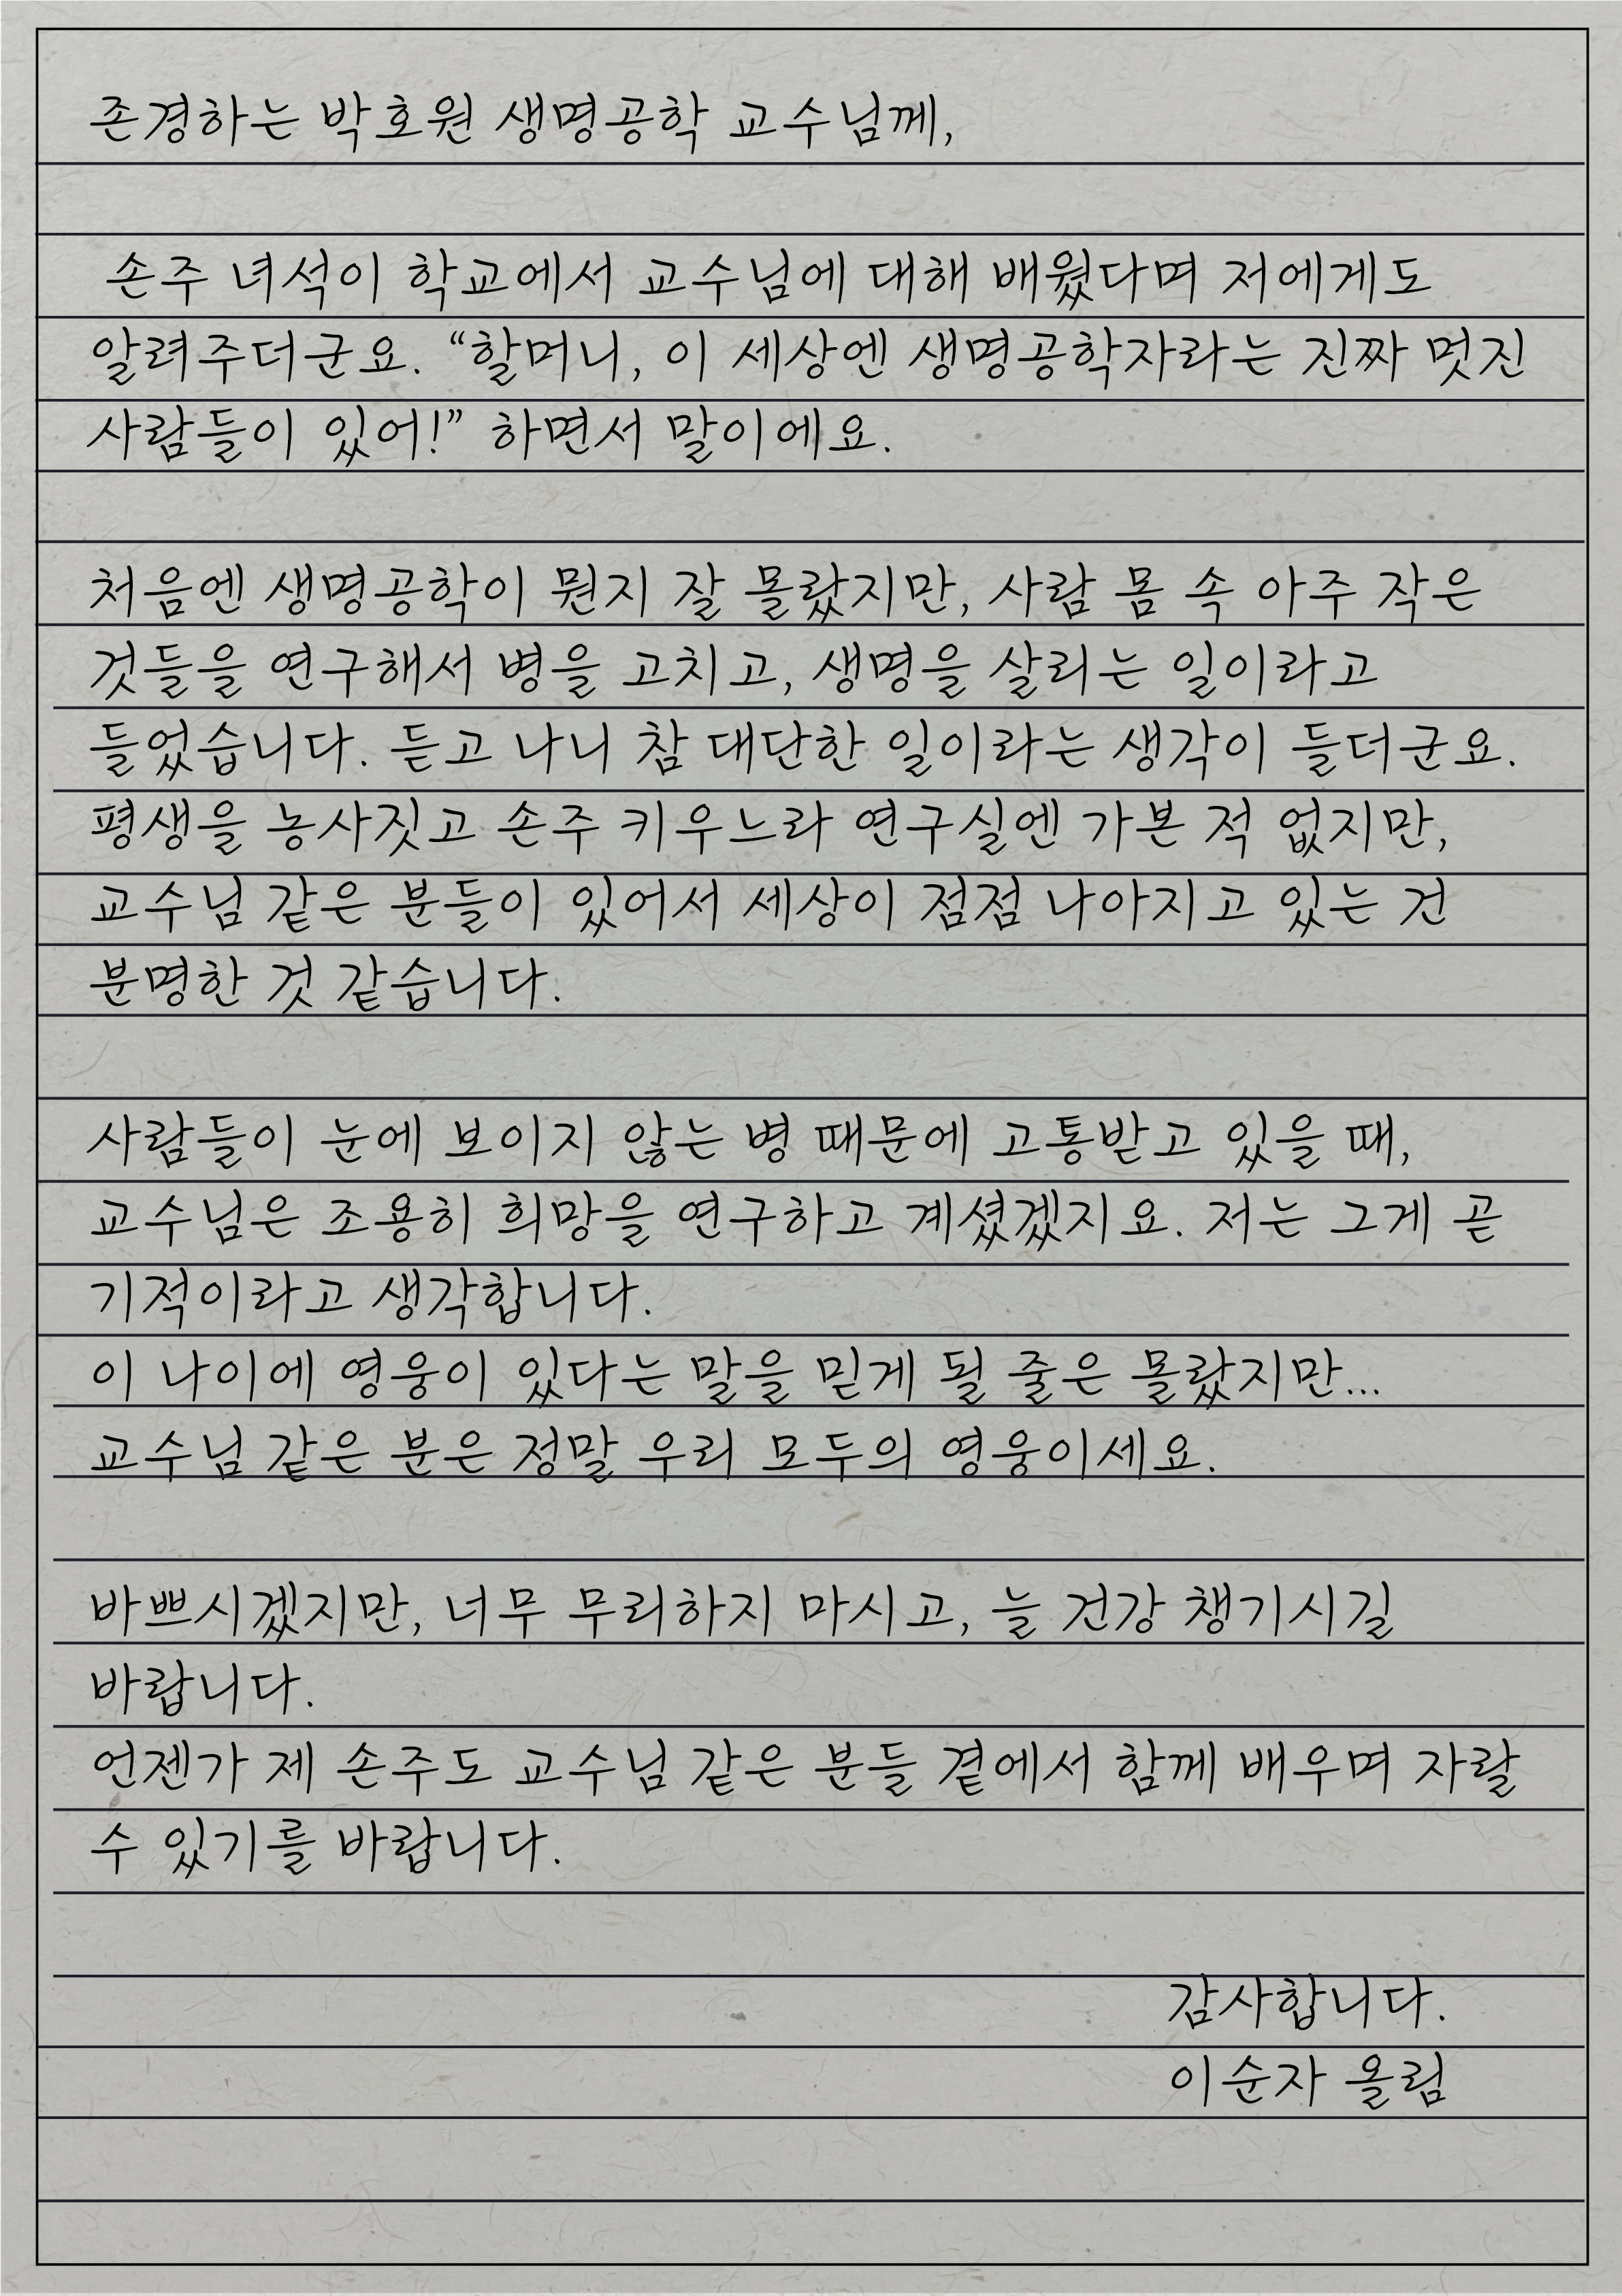 존경하는 박호원 생명공학 교수님께,
손주 녀석이 학교에서 교수님에 대해 배웠다며 저에게도
알려주더군요. “할머니, 이 세상엔 생명공학자라는 진짜 멋진
사람들이 있어!” 하면서 말이에요.
처음엔 생명공학이 뭔지 잘 몰랐지만, 사람 몸 속 아주 작은
것들을 연구해서 병을 고치고, 생명을 살리는 일이라고
들었습니다. 듣고 나니 참 대단한 일이라는 생각이 들더군요.
평생을 농사짓고 손주 키우느라 연구실엔 가본 적 없지만,
교수님 같은 분들이 있어서 세상이 점점 나아지고 있는 건
분명한 것 같습니다.
사람들이 눈에 보이지 않는 병 때문에 고통받고 있을 때,
교수님은 조용히 희망을 연구하고 계셨겠지요. 저는 그게 곧
기적이라고 생각합니다.
이 나이에 영웅이 있다는 말을 믿게 될 줄은 몰랐지만...
교수님 같은 분은 정말 우리 모두의 영웅이세요.
바쁘시겠지만, 너무 무리하지 마시고, 늘 건강 챙기시길
바랍니다.
언젠가 제 손주도 교수님 같은 분들 곁에서 함께 배우며 자랄
수 있기를 바랍니다.
감사합니다.
이순자 올림